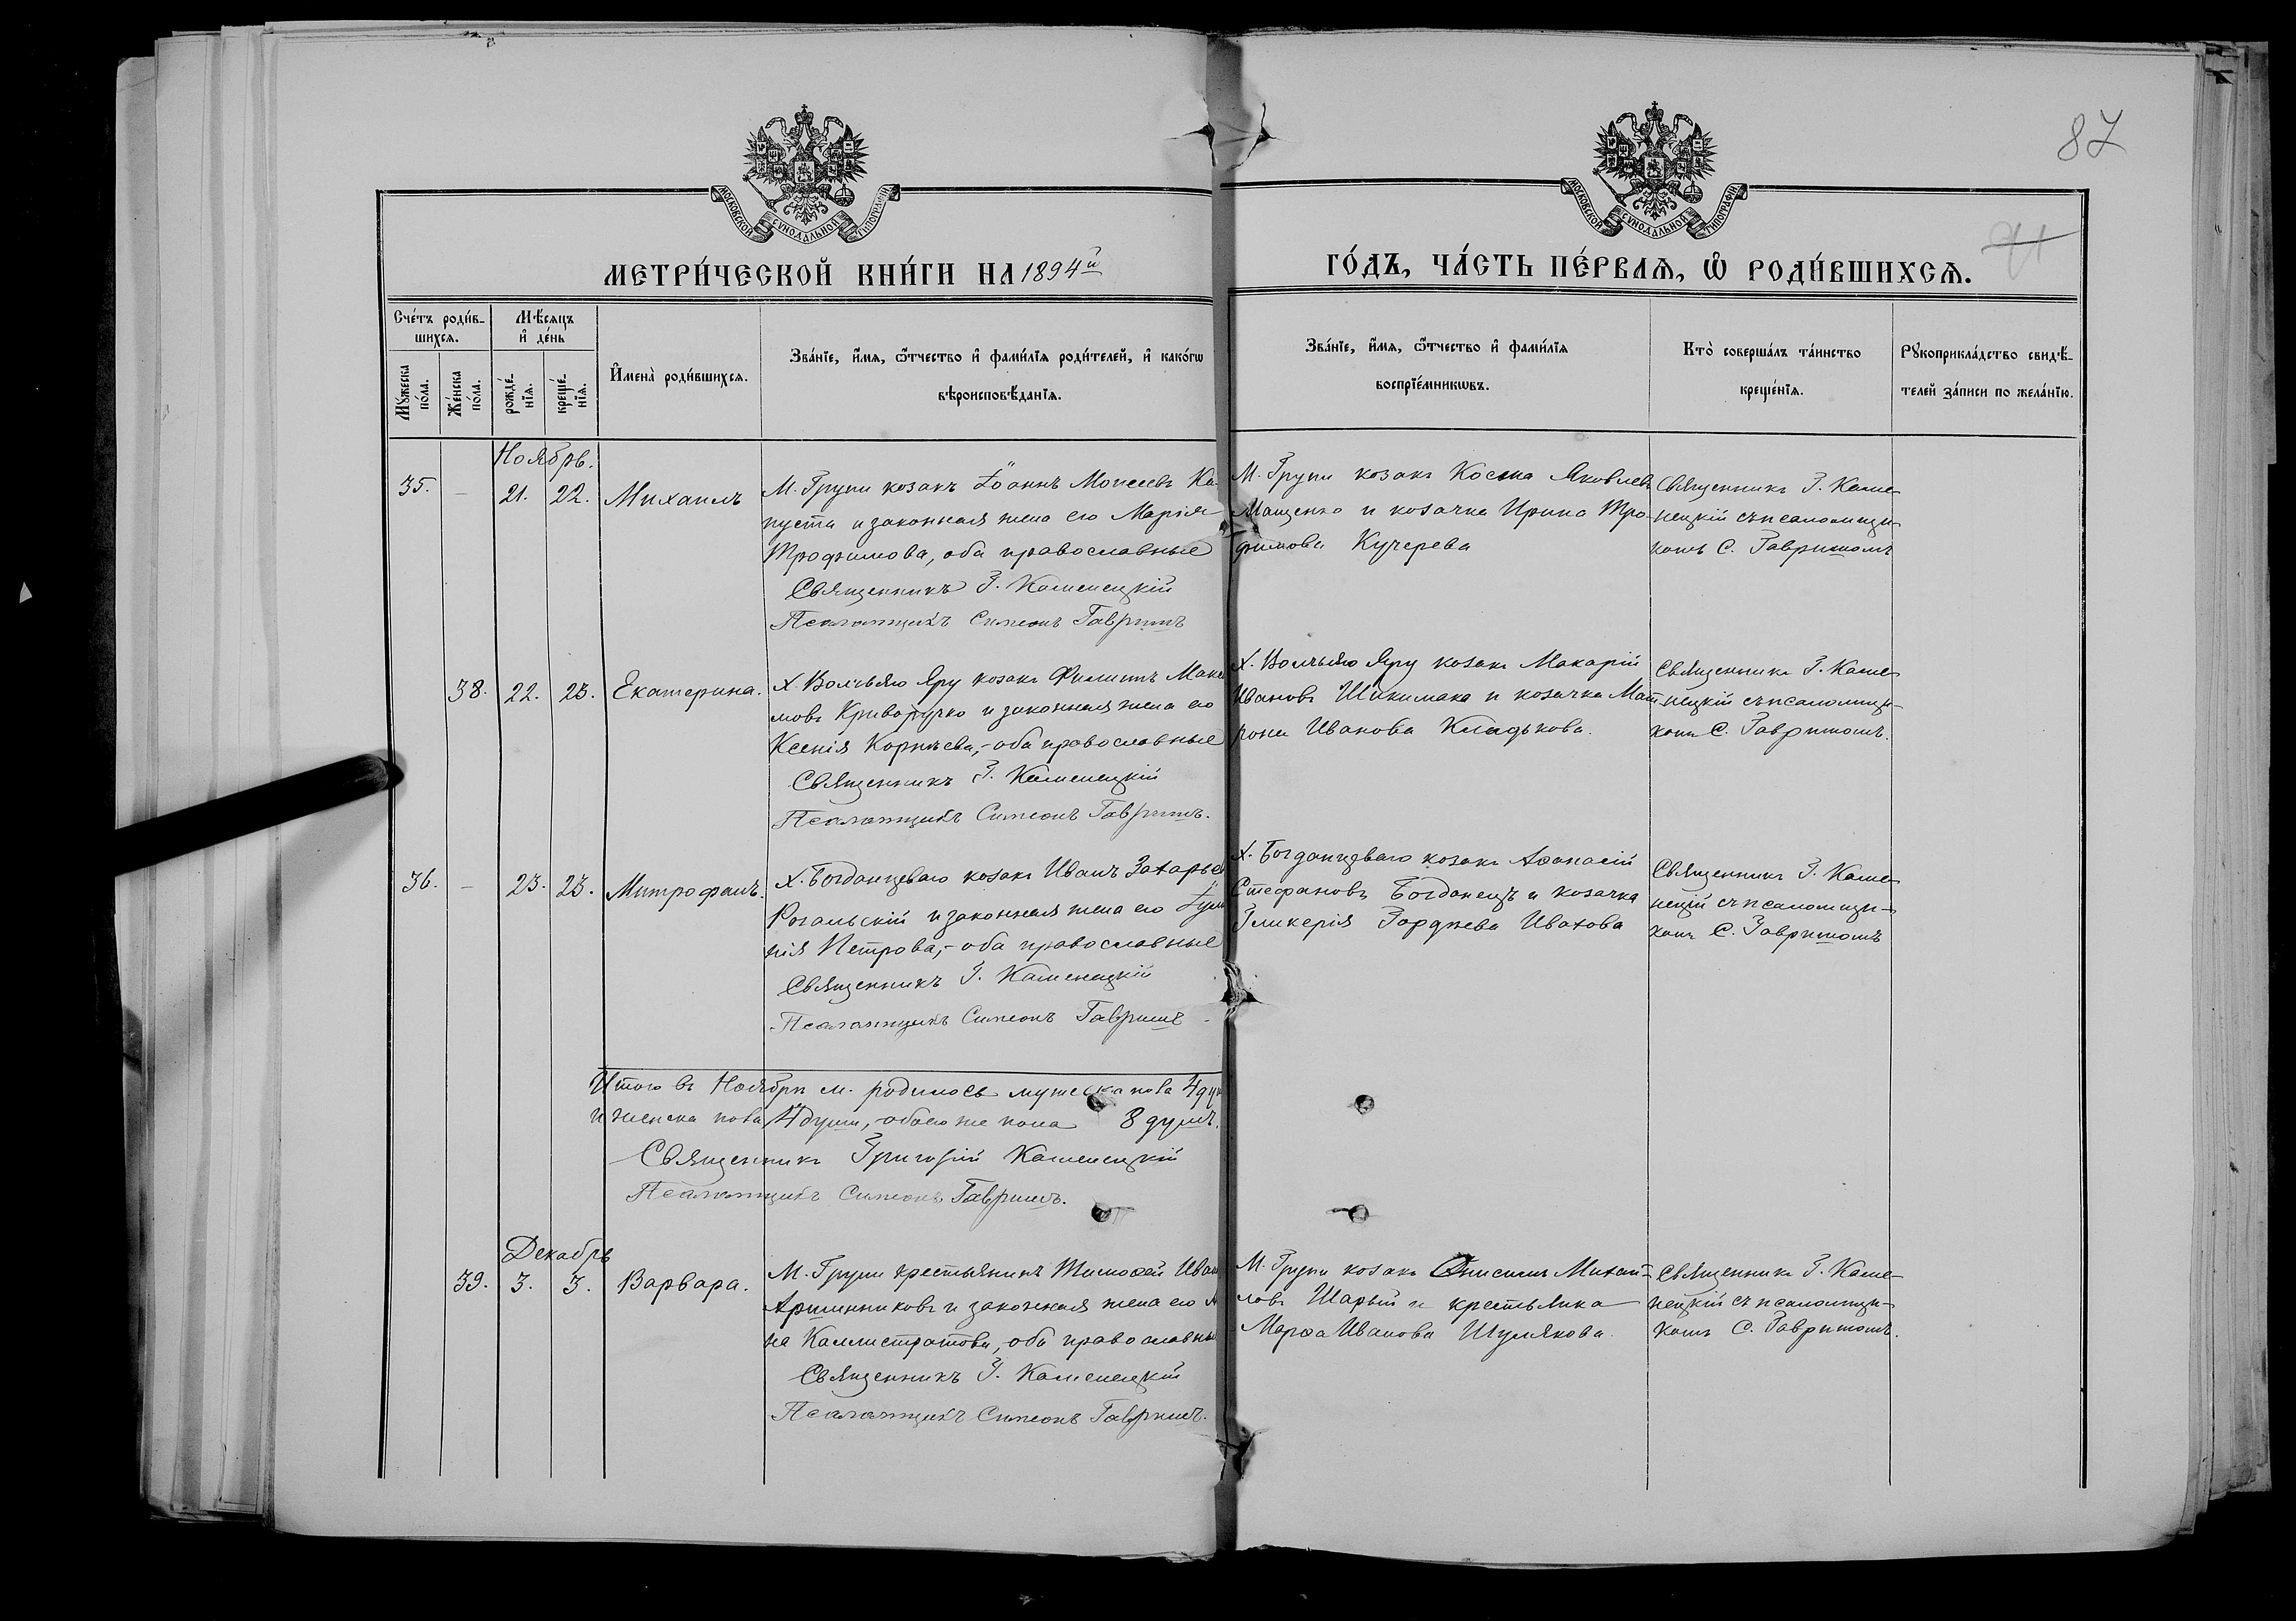 87
МОСКОВСКОЙ СУНОДАЛЬНОЙ ТИПОГРАФІИ
МОСКОВСКОЙ СУНОДАЛЬНОЙ ТИПОГРАФІИ
МЕТРИ́ЧЕСКОЙ КНИ́ГИ НА 1894й
ГО́ДЪ, ЧА́СТЬ ПЕ́РВАѦ, Ѡ РОДИ́ВШИХСѦ.
Сче́тъ роди́в-
шихсѧ.
Мꙋжеска по́ла.
Же́нска по́ла.
Мѣ́сѧцъ
и҆ де́нь
рожде́-
нїѧ.
креще́-
нїѧ.
И҆мена̀ роди́вшихсѧ.
Зва́нїе, и҆́мѧ, ѻ҆́тчество и҆ фами́лїѧ роди́телей, и҆ како́гѡ
вѣроисповѣ́данїѧ.
Зва́нїе, и҆́мѧ, ѻ҆́тчество и҆ фами́лїѧ
воспрїе́мникѡвъ.
Кто̀ соверша́лъ та́инство
креще́нїѧ.
Рꙋкоприкла́дство свидѣ́-
телей за́писи по жела́нїю.
Ноябрь.
35. – 21. 22. Михаилъ
М. Груни козакъ Іоаннъ Моисеевъ Ка-
пуста и законная жена его Марія
Трофимова, оба православные
Священникъ Г. Каменецкій
Псаломщикъ Симеонъ Гавришъ
М. Груни козакъ Косма Яковлевъ
Мащенко и козачка Ирина Тро-
фимова Кучерева
Священникъ Г. Каме-
нецкій съ псаломщи-
комъ С. Гавришомъ
38. 22. 23. Екатерина.
Х. Волчьяго Яру козакъ Филиппъ Макси
мовъ Криворучко и законная жена его
Ксенія Корнѣева,- оба православные
Священникъ Г. Каменецкій
Псаломщикъ Симеонъ Гавришъ.
Х. Волчьяго Яру козакъ Макарій
Ивановъ и козачка Мат-
рона Иванова
Священникъ Г. Каме-
нецкій съ псаломщи-
комъ С. Гавришомъ.
36. – 23. 23. Митрофанъ.
Х. Богданцеваго козакъ Иванъ Захарьев
Рогальскій и законная жена его
нія Петрова,- оба православные
Священникъ Г. Каменецкій
Псаломщикъ Симеонъ Гавришъ
Х. Богданцеваго козакъ Аѳанасій
Стефановъ Богданецъ и козачка
Гликерія Гордѣева
Священникъ Г. Каме-
нецій съ псаломщи-
комъ С. Гавришомъ
Итого въ Ноябрѣ м. родилось мужеска пола 4 ду
и женска пола 4 души, обоего же пола 8 душъ.
Священникъ Григорій Каменецкій
Псаломщикъ Симеонъ Гавришъ.
Декабрь
39. 3. 3. Варвара.
М. Груни крестьянинъ Тимоѳей Иван
Аршинниковъ и законная жена его А
на Каллистратова, оба православны
Священникъ Г. Каменецкій
Псаломщикъ Симеонъ Гавришъ.
М. Груни козакъ Онисимъ Михай-
ловъ Шарый и крестьянка
Марѳа Иванова Шумякова.
Священникъ Г. Каме-
нецкій съ псаломщи-
комъ С. Гавришомъ.